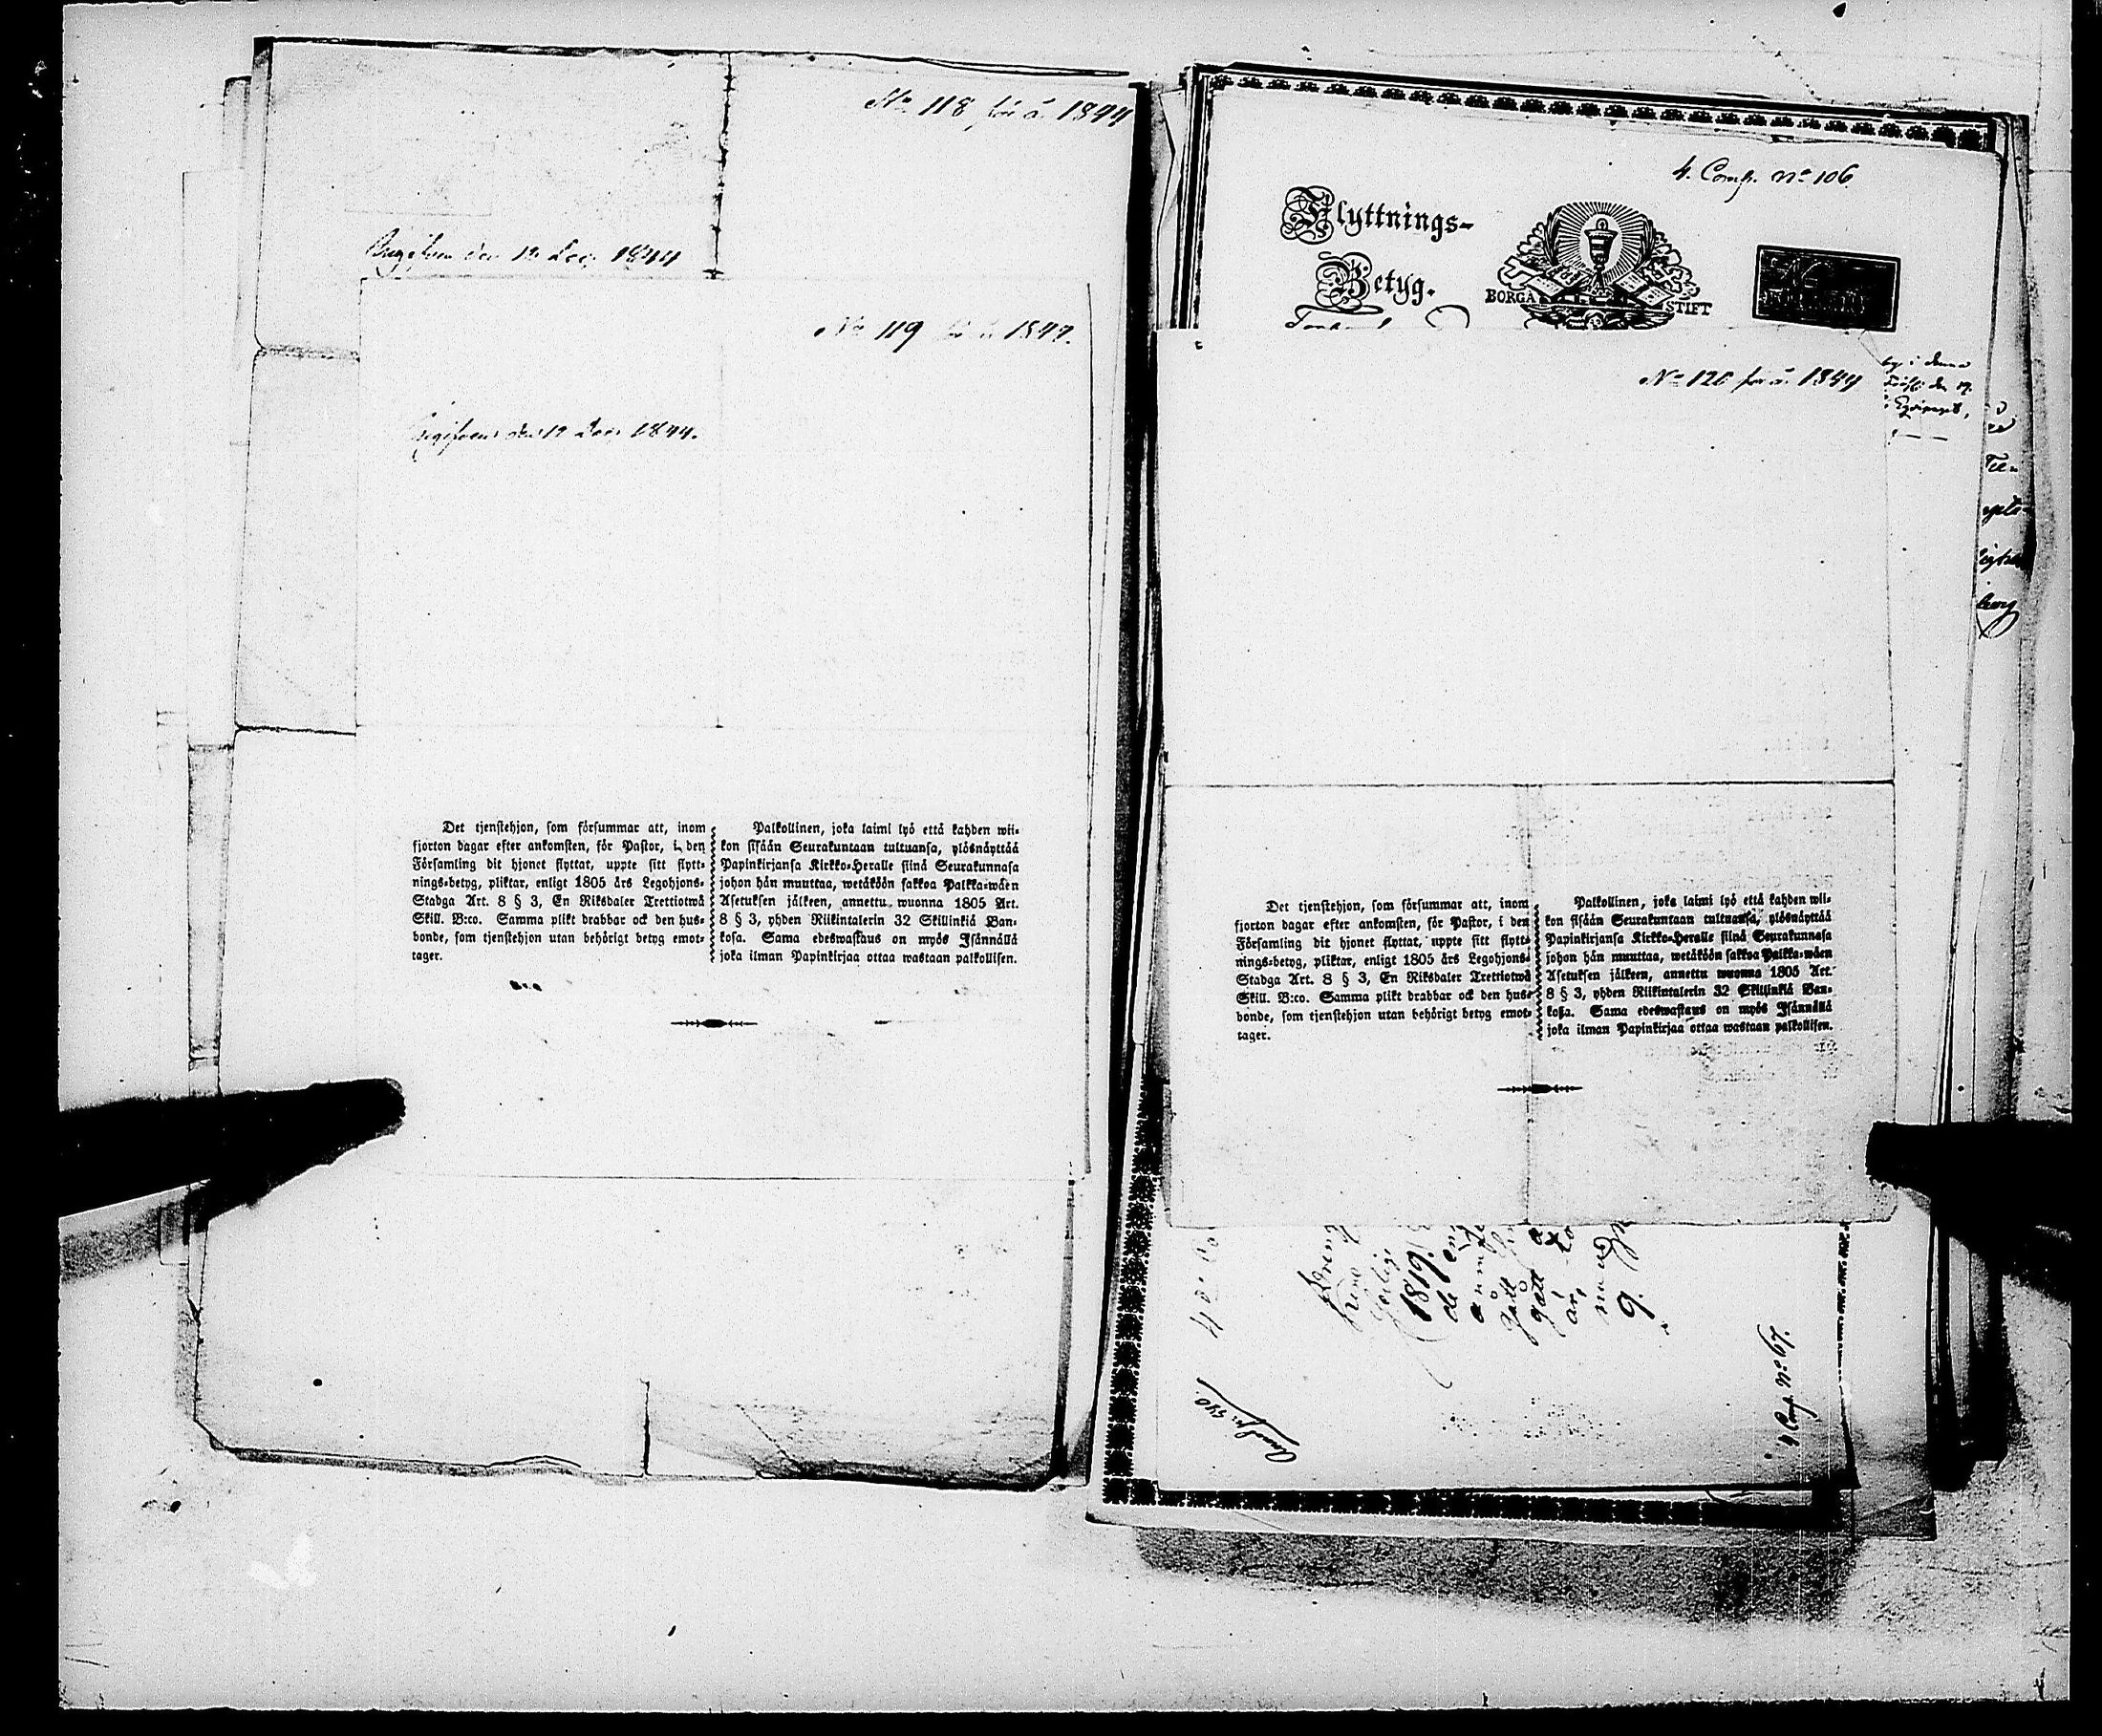 No 118 för å. 1844
den 12 Dec. 1844
No 119 för å. 1844.
den 12 Dec. 1844.
Det tjenstehjon, som försummar att, inom
fjorton dagar efter ankomsten, för Pastor, i den
Församling dit hjonet flyttat, uppte sitt flytt-
nings-betyg, pliktar, enligt 1805 års Legohjons-
Stadga Art. 8 § 3, En Riksdaler Trettiotwå
Skill. B:co. Samma plikt drabbar ock den hus-
bonde, som tjenstehjon utan behörigt betyg emot-
tager.
Palkollinen, joka laimi lyö että kahden wii-
kon sisään Seurakuntaan tultuansa, ylösnäyttää
Papinkirjansa Kirkko-Heralle siinä Seurakunnasa
johon hän muuttaa, wetäköön sakkoa Palkka-wäen
Asetuksen jälkeen, annettu wuonna 1805 Art.
8 § 3, yhden Riikintalerin 32 Skillinkiä Ban-
kosa. Sama edeswastaus on myös Isännällä
joka ilman Papinkirjaa ottaa wastaan palkollisen.
4. Comp. No 106
Flyttnings-
Betyg.
BORGÅ STIFT
No 120 för å. 1844
Det tjenstehjon, som försummar att, inom
fjorton dagar efter ankomsten, för Pastor, i den
Församling dit hjonet flyttat, uppte sitt flytt-
nings-betyg, pliktar, enligt 1805 års Legohjons-
Stadga Art. 8 § 3, En Riksdaler Trettiotwå
Skill. B:co. Samma plikt drabbar ock den hus-
bonde, som tjenstehjon utan behörigt betyg emot-
tager.
Palkollinen, joka laimi lyö että kahden wii-
kon sisään Seurakuntaan tultuansa, ylösnäyttää
Papinkirjansa Kirkko-Heralle siinä Seurakunnasa
johon hän muuttaa, wetäköön sakkoa Palkka-wäen
Asetuksen jälkeen, annettu wuonna 1805 Art.
8 § 3, yhden Riikintalerin 32 Skillinkiä Ban-
kosa. Sama edeswastaus on myös Isännällä
joka ilman Papinkirjaa ottaa wastaan palkollisen.
1819.
gått
år,
9.
4 Comp. No 67.